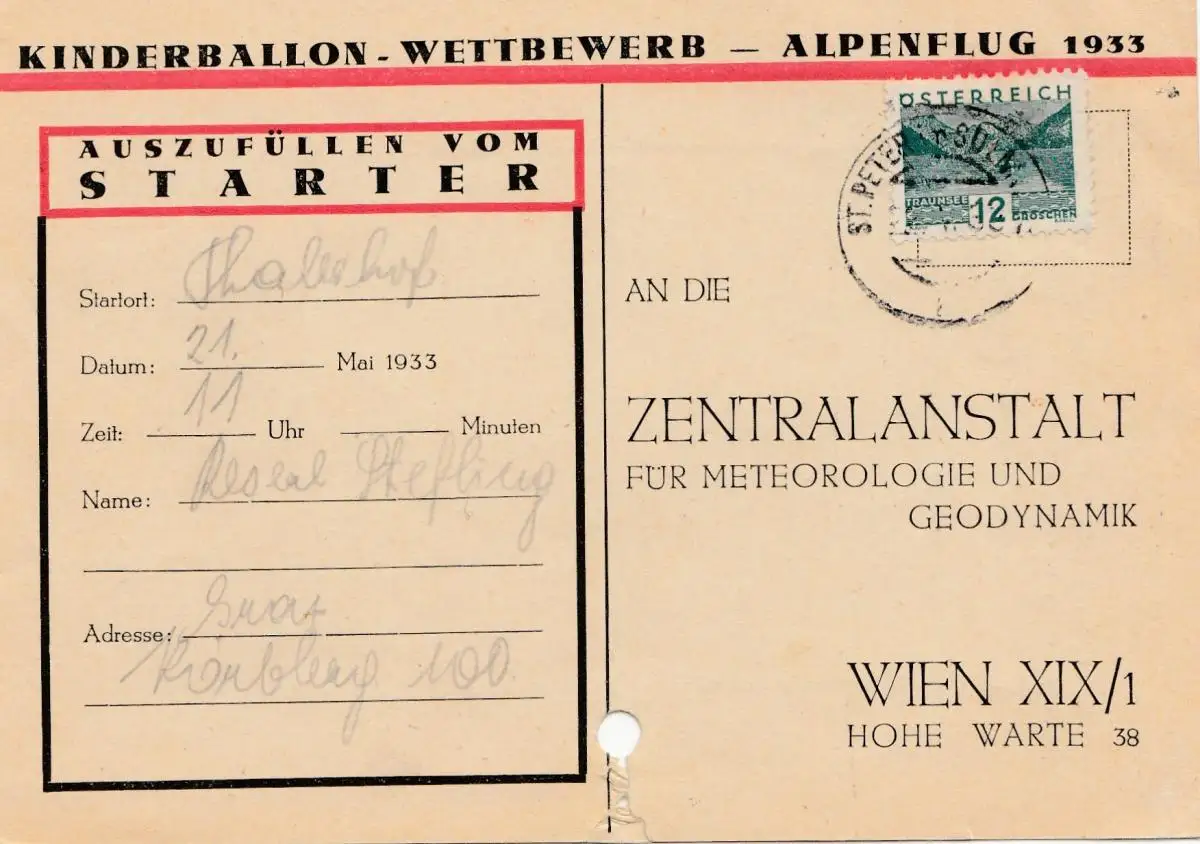 KINDERBALLON - WETTBEWERB — ALPENFLUG 1933
AUSZUFÜLLEN VOM
STARTER
Startort: Thalerhof
Datum: 21. Mai 1933
Zeit: 11 Uhr Minuten
Name:
Adresse: Graz
Körblerg 100
ÖSTERREICH
TRAUNSEE 12 GROSCHEN
ST. PETER
AN DIE
ZENTRALANSTALT
FÜR METEOROLOGIE UND
GEODYNAMIK
WIEN XIX/1
HOHE WARTE 38